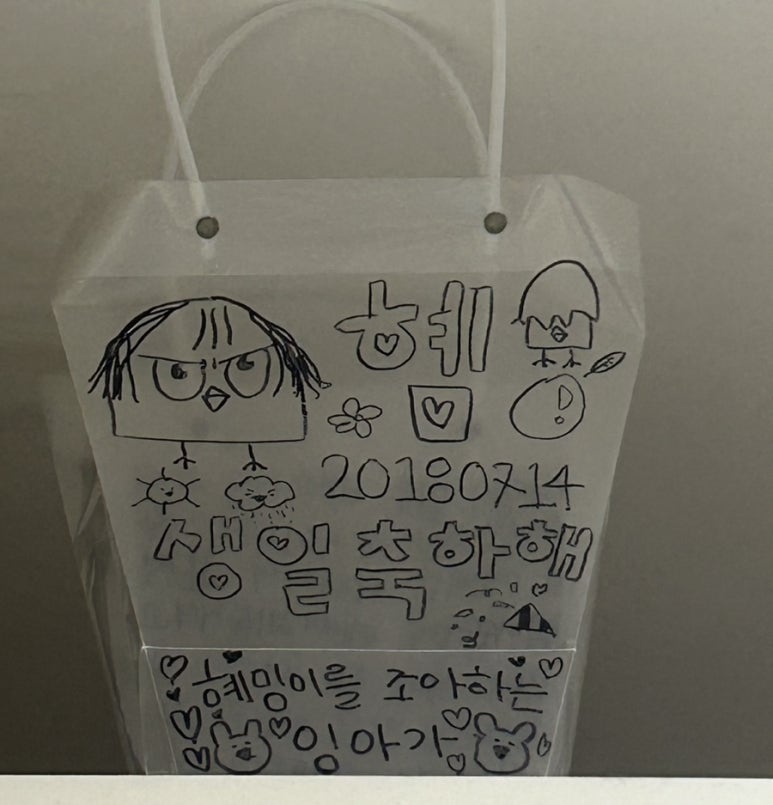 혬
!
20180714
생일축하해
혜밍이를 조아하는
잉아가